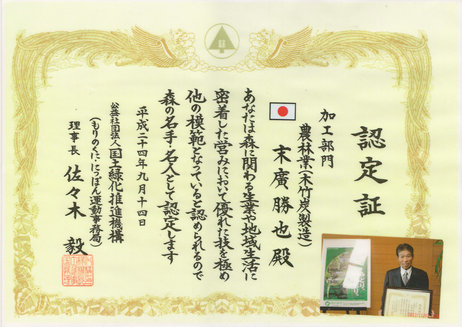 認定証
加工部門
農林業(木竹炭製造)
末廣勝也殿
あなたは森に関わる生業や地域生活に
密着した営みにおいて優れた技を極め
他の模範となっていると認められるので
森の名手・名人として認定します
平成二十四年九月十四日
公益社団法人国土緑化推進機構
(もりのくに・にっぽん運動事務局)
理事長 佐々木 毅